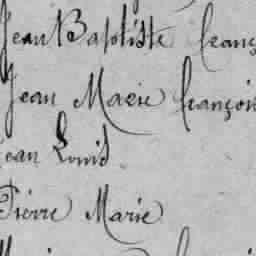 Jean Baptiste franç
Jean Marie françois
Jean Louis
Pierre Marie